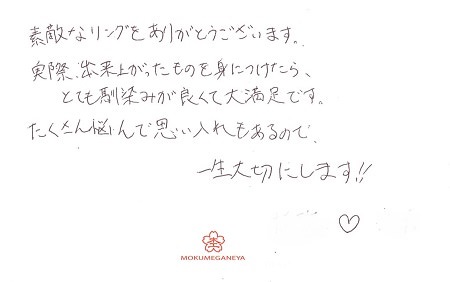 素敵なリングをありがとうございます。
実際、出来上がったものを身につけたら、
とても馴染みが良くて大満足です。
たくさん悩んで思い入れもあるので、
一生大切にします!!
♡
MOKUMEGANEYA